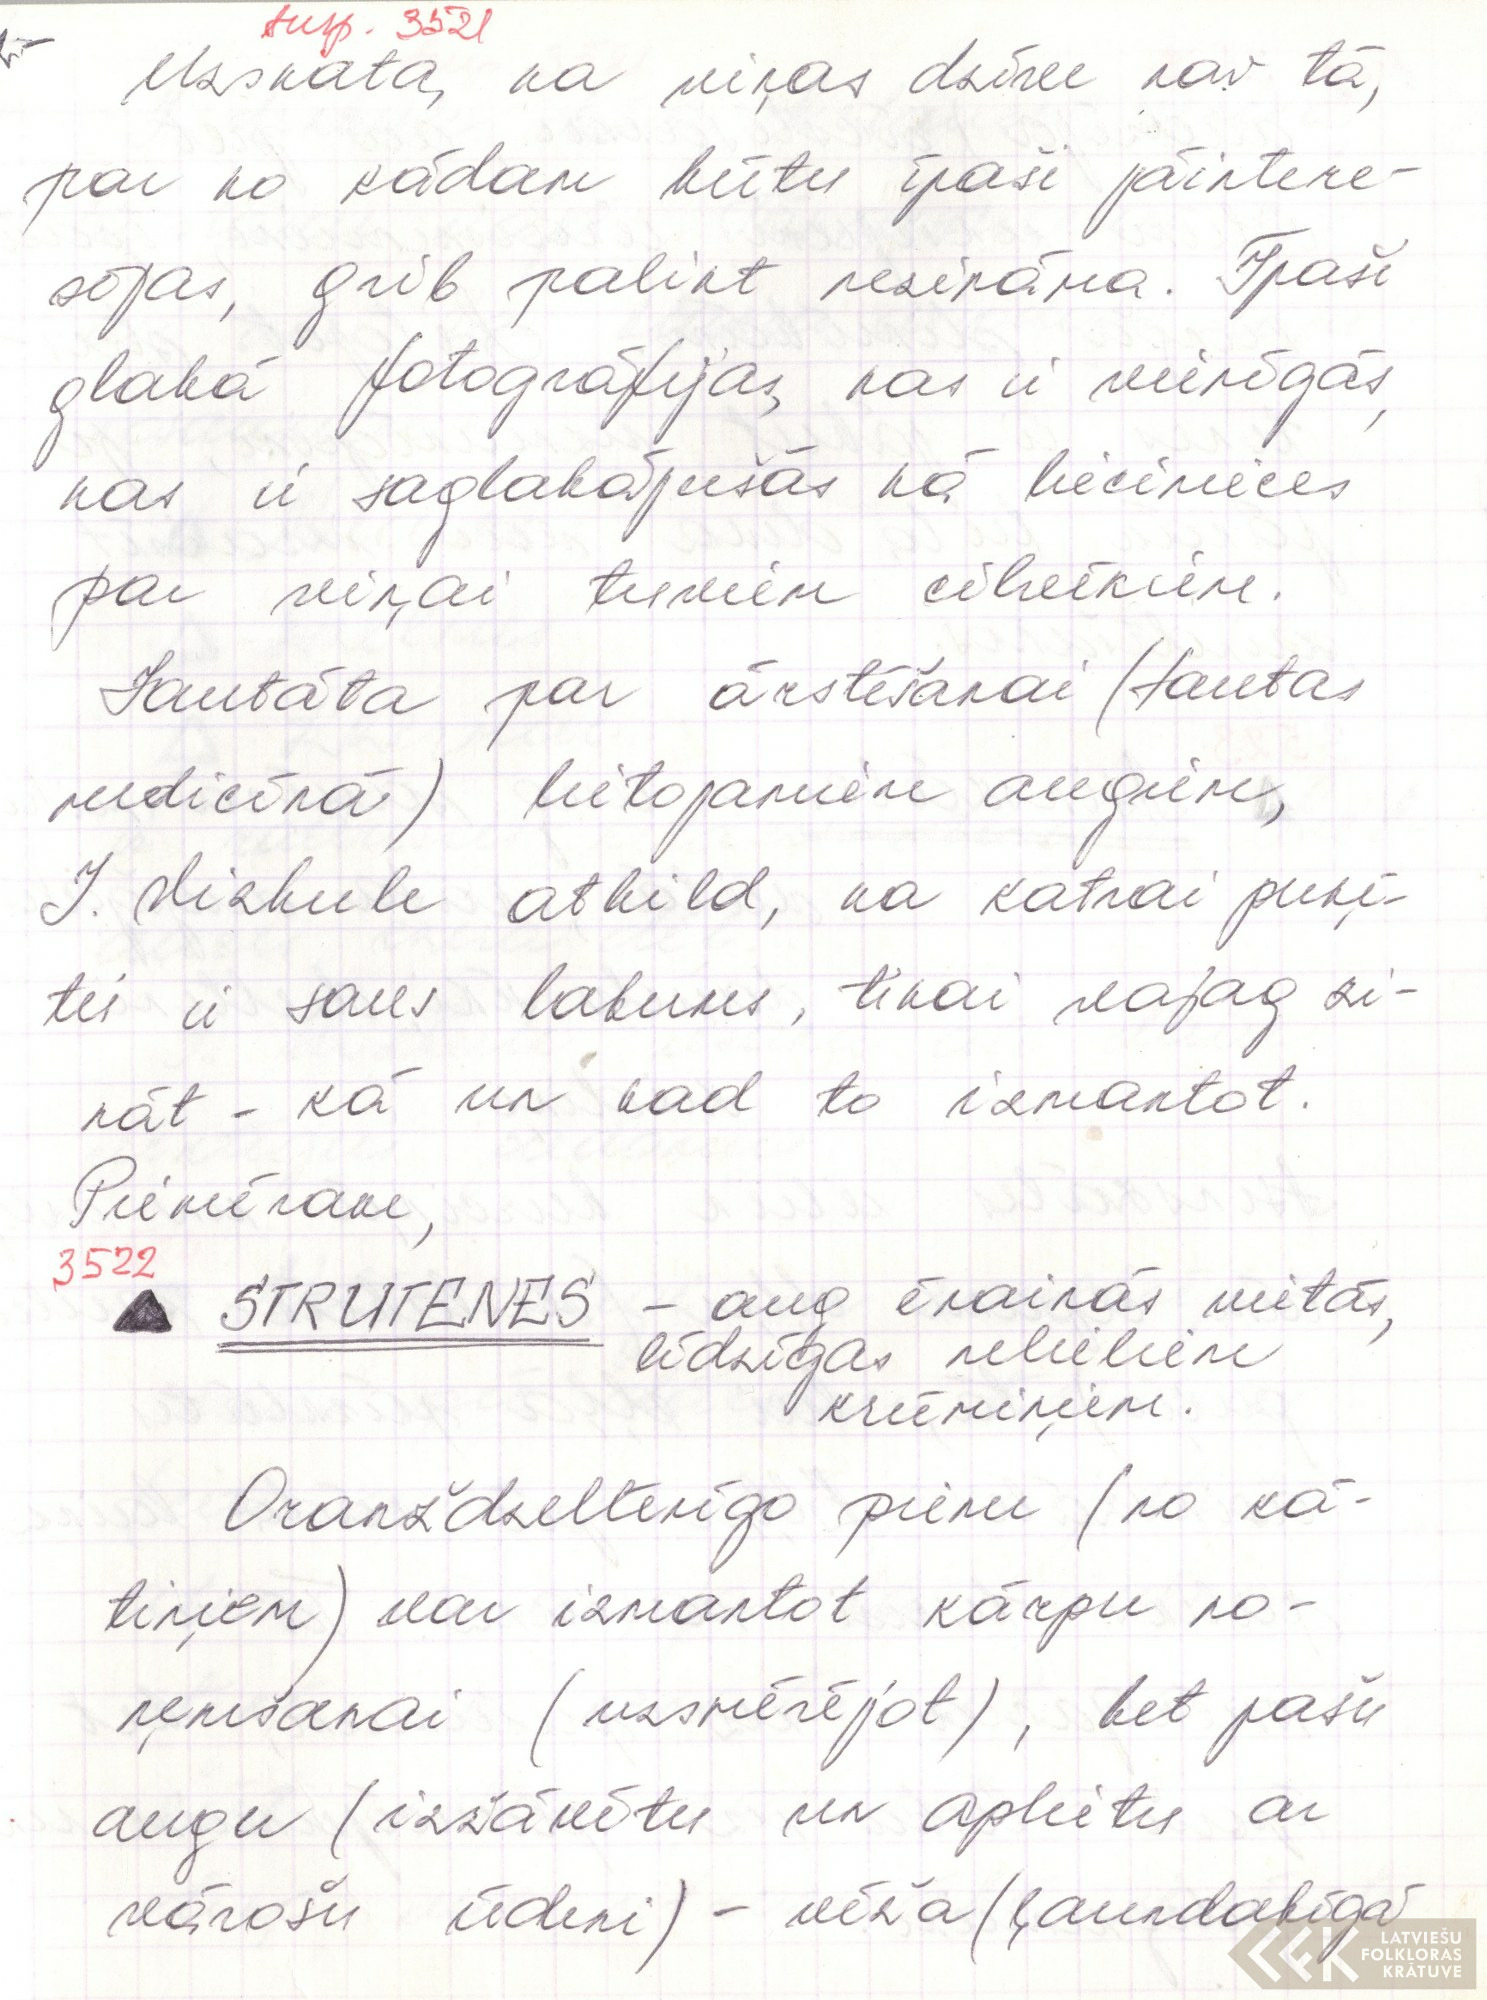 turp. 3521
Uzskata, ka viņas dzīve nav tā,
par ko kādam būtu īpaši jāintere-
sējas, grib palikt nezināma. Īpaši
glabā fotogrāfijas, kas ir vienīgās,
kas ir saglabājušās kā liecinieces
par viņai tuviem cilvēkiem.
Jautāta par ārstēšanai (tautas
medicīnā) lietojamiem augiem,
I. Vizbule atbild, ka katrai puķī-
tei ir savs labums, tikai vajag zi-
nāt - kā un kad to izmantot.
Piemēram,
3522
STRUTENES - aug ēnainās vietās,
līdzīgas nelieliem
krūmiņiem.
Oranždzeltenīgo pienu (no kā-
tiņiem) var izmantot kārpu no-
ņemšanai (uzsmērējot), bet pašu
augu (izžāvētu un aplietu ar
vārošu ūdeni) - vēža (ļaundabīgā
LATVIEŠU
FOLKLORAS
KRĀTUVE